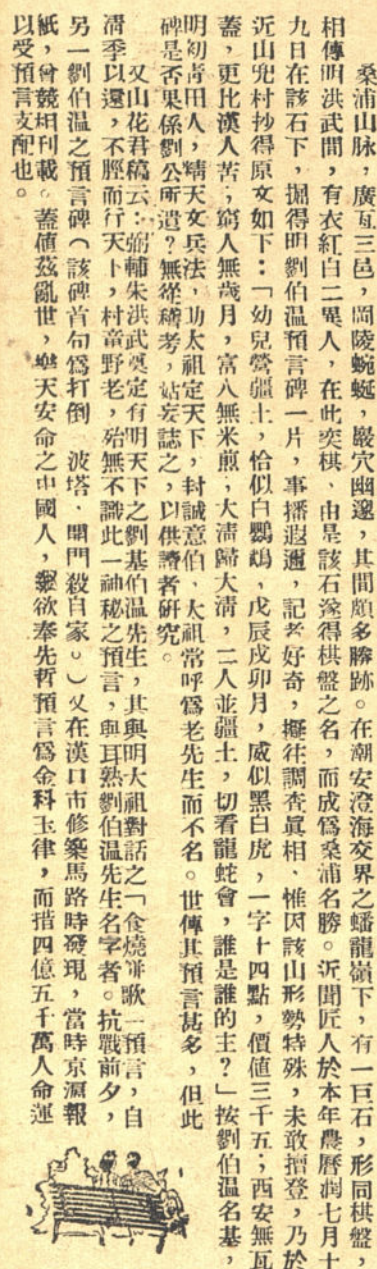 桑浦山脉，廣亙三邑，岡陵蜿蜒，巖穴幽邃，其間頗多勝跡。在潮安澄海交界之蟠龍嶺下，有一巨石，形同棋盤，
相傳明洪武間，有衣紅白二異人，在此奕棋、由是該石遂得棋盤之名，而成爲桑浦名勝。近聞匠人於本年農曆潤七月十
九日在該石下，掘得明劉伯温預言碑一片，事播遐邇，記者好奇，擬往調查眞相、惟因該山形勢特殊，未敢擅登，乃於
近山兜村抄得原文如下：「幼兒營疆土，恰似白鸚鵡，戊辰戌卯月，威似黑白虎，一字十四點，價値三千五；西安無瓦
蓋，更比漢人苦；窮人無歲月，富人無米煎，大清歸大清，二人並疆土，切看龍蛇會，誰是誰的主？」按劉伯温名基，
明初靑田人，精天文兵法，功太祖定天下，封誠意伯、太祖常呼爲老先生而不名。世傳其預言甚多，但此
碑是否果係劉公所遺？無從稽考，姑妄誌之，以供讀者研究。
又山花君稿云：弼輔朱洪武奠定有明天下之劉基伯温先生，其與明太祖對話之「食燒餅歌」預言，自
淸季以還，不脛而行天下，村童野老，殆無不識此一神秘之預言，與耳熟劉伯温先生名字者。抗戰前夕，
另一劉伯温之預言碑（該碑首句爲打倒　波塔．開門殺自家。）又在漢口市修築馬路時發現，當時京滬報
紙，曾競相刊載。蓋値茲亂世，樂天安命之中國人，輒欲奉先哲預言爲金科玉律，而措四億五千萬人命運
以受預言支配也。